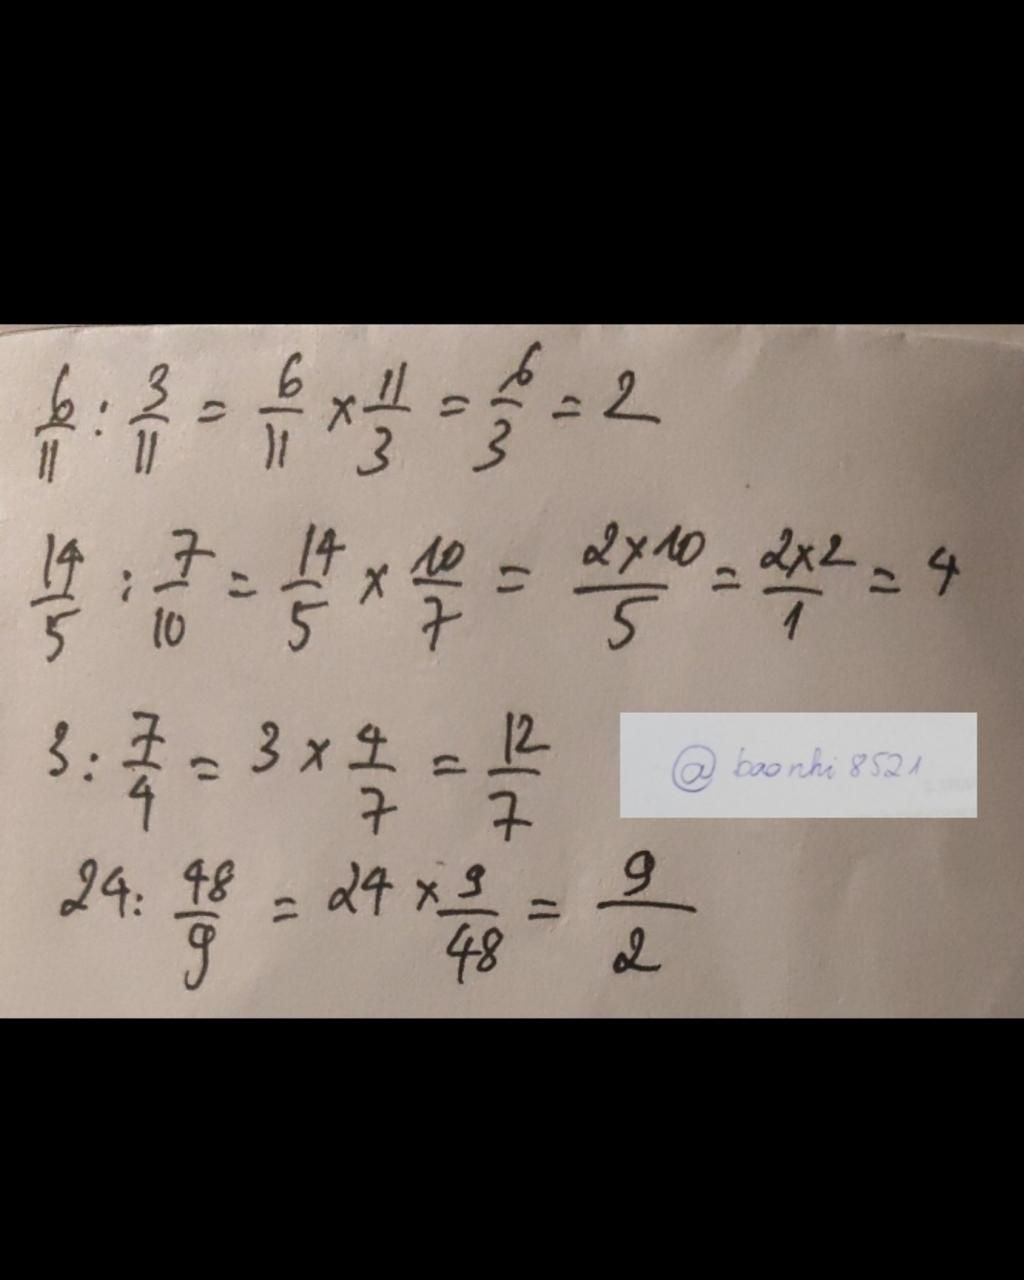 6/11 : 3/11 = 6/11 × 11/3 = 6/3 = 2
14/5 : 7/10 = 14/5 × 10/7 = 2×10/5 = 2×2/1 = 4
3 : 7/4 = 3 × 4/7 = 12/7
@baonhi8521
24 : 48/9 = 24 × 9/48 = 9/2